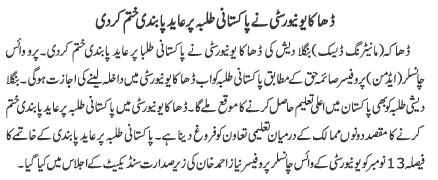 ڈھاکا یونیورسٹی نے پاکستانی طلبہ پر عاید پابندی ختم کردی
ڈھاکہ (مانیٹرنگ ڈیسک) بنگلا دیش کی ڈھاکا یونیورسٹی نے پاکستانی طلبا پر عاید پابندی ختم کردی۔ پرووائس
چانسلر (ایڈمن) پروفیسر صائمہ حق کے مطابق پاکستانی طلبہ کو اب ڈھاکا یونیورسٹی میں داخلہ لینے کی اجازت ہوگی۔ بنگلا
دیشی طلبہ کو بھی پاکستان میں اعلیٰ تعلیم حاصل کرنے کا موقع ملے گا۔ ڈھاکا یونیورسٹی میں پاکستانی طلبہ پر عاید پابندی ختم
کرنے کا مقصد دونوں ممالک کے درمیان تعلیمی تعاون کو فروغ دینا ہے۔ پاکستانی طلبہ پر عاید پابندی کے خاتمے کا
فیصلہ 13 نومبر کو یونیورسٹی کے وائس چانسلر پروفیسر نیاز احمد خان کی زیر صدارت سنڈیکیٹ کے اجلاس میں کیا گیا۔